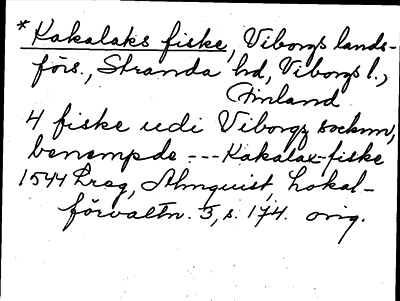 * Kakalaks fiske, Viborgs lands-
förs., Stranda hd, Viborgs l.,
Finland
4 fiske udi Viborgz socknn,
benempde --- Kakalax-fiske
1544 Lreg, Almquist, Lokal-
förvaltn. 3, s. 174. orig.